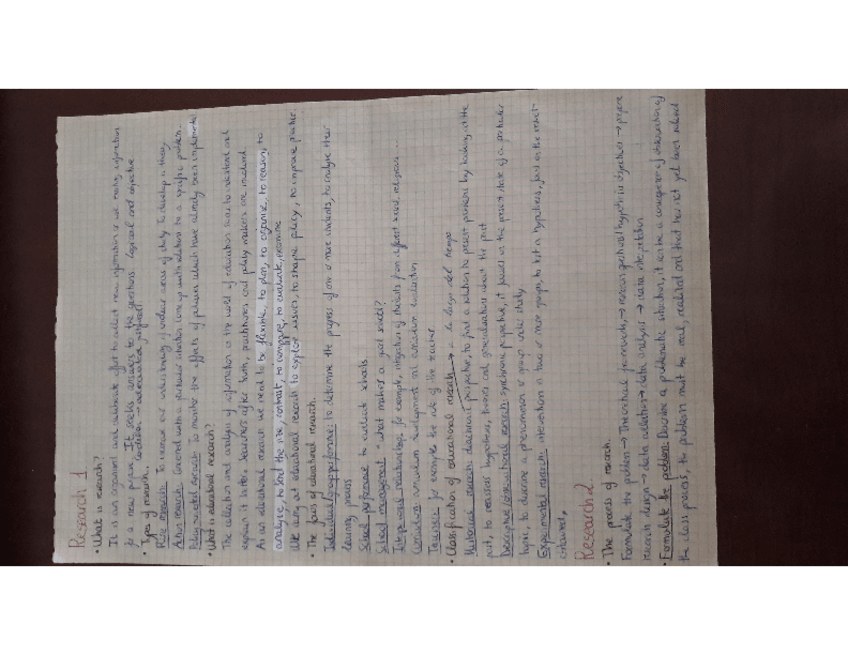 Research 1
• What is research?
It is an organised and deliberate effort to collect new information or use existing information
for a new purpose. It seeks answers to the questions. Logical and objective
• Types of research.
Pure research: To increase our understanding of unclear areas of study. To develop a theory
Action research: Concerned with a particular situation, come up with solutions to a specific problem.
Policy-oriented research: To monitor the effects of policies which have already been implemented
• What is educational research?
The collection and analysis of information on the world of education so as to understand and
explain it better. Teachers, other staff, practitioners and policy makers are involved
As an educational research we need to be flexible, to plan, to organise, to reason, to
analyse, to contrast, to compare, to evaluate, examine
We aim at educational research to explore issues, to shape policy, to improve practice
• The focus of educational research.
Individual/group performance: to determine the progress of one or more students, to analyse their
learning process
School performance to evaluate schools
School management. what makes a good school?
Interpersonal relationships for example, integration of students from different social, religious ...
Curriculum curriculum development and curriculum evaluation
Teachers for example the role of the teacher
• Classification of educational research → a lo largo del tiempo
Historical research: diachronic perspective, to find a solution to present problems by looking at the
past, to reassess hypothesis, theories and generalisations about the past
Descriptive/observational research: synchronic perspective, it focuses on the present state of a particular
topic. to describe a phenomenon or group under study
Experimental research: interventions in two or more groups, to test a hypothesis, focus on the
Research 2
• The process of research.
Formulate the problem → Theoretical framework → research questions/hypothesis objectives → prepare
research design → data collection → data analysis → data interpretation
• Formulate the problem: Describe a problematic situation, it can be a consequence of observation of
the class process, the problem must be real, realised and that has not yet been solved